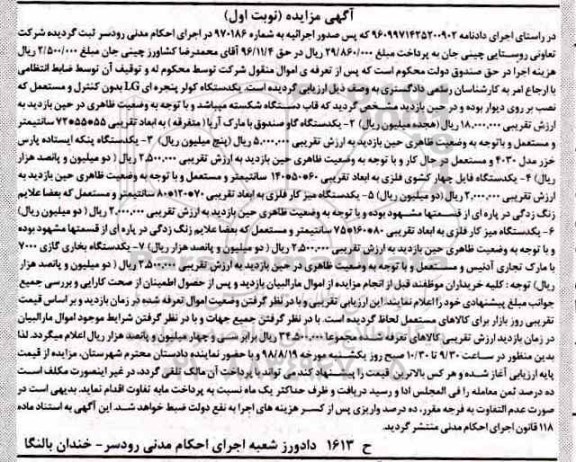 آگهی مزایده (نوبت اول)
در راستای اجرای دادنامه ۹۶۰۹۹۷۱۴۲۵۲۰۰۹۰۲ که پس صدور اجرائیه به شماره ۹۷۰۱۸۶ در اجرای احکام مدنی رودسر ثبت گردیده شرکت
تعاونی روستایی چینی جان به پرداخت مبلغ ۲۹/۸۶۰/۰۰۰ ریال در حق ۹۶/۱۱/۴ آقای محمدرضا کشاورز چینی جان مبلغ ۲/۵۰۰/۰۰۰ ریال
هزینه اجرا در حق صندوق دولت محکوم است که پس از تعرفه ی اموال منقول شرکت توسط محکوم له و توقیف آن توسط ضابط انتظامی
با ارجاع امر به کارشناسان رسمی دادگستری به وصف ذیل ارزیابی گردیده است. یکدستگاه کولر پنجره ای LG بدون کنترل و مستعمل که
نصب بر روی دیوار بوده و در حین بازدید مشخص گردید که قاب دستگاه شکسته میباشد و با توجه به وضعیت ظاهری در حین بازدید به
ارزش تقریبی ۱۸,۰۰۰,۰۰۰ ریال (هجده میلیون ریال) ۲- یکدستگاه گاو صندوق با مارک آریا (متفرقه) به ابعاد تقریبی ۵۵*۵۵*۷۲ سانتیمتر
و مستعمل و باتوجه به وضعیت ظاهری حین بازدید به ارزش تقریبی ۵,۰۰۰,۰۰۰ ریال (پنج میلیون ریال) ۳- یکدستگاه پنکه ایستاده پارس
خزر مدل ۴۰۳۰ و مستعمل در حال کار و با توجه به وضعیت ظاهری حین بازدید به ارزش تقریبی ۲,۵۰۰,۰۰۰ ریال (دو میلیون و پانصد هزار
ریال) ۴- یکدستگاه فایل چهار کشوی فلزی به ابعاد تقریبی ۶۰*۵۰*۱۴۰ سانتیمتر و مستعمل و با توجه به وضعیت ظاهری حین بازدید به
ارزش تقریبی ۲,۰۰۰,۰۰۰ ریال (دو میلیون ریال) ۵- یکدستگاه میز کار فلزی به ابعاد تقریبی ۷۰*۱۲۰*۸۰ سانتیمتر و مستعمل که بعضا علایم
زنگ زدگی در پاره ای از قسمتها مشهود بوده و با توجه به وضعیت ظاهری حین بازدید به ارزش تقریبی ۲,۰۰۰,۰۰۰ ریال (دو میلیون ریال)
۶- یکدستگاه میز کار فلزی به ابعاد تقریبی ۸۰*۱۶۰*۷۵ سانتیمتر و مستعمل که بعضا علایم زنگ زدگی در پاره ای از قسمتها مشهود بوده
و با توجه به وضعیت ظاهری حین بازدید به ارزش تقریبی ۲,۵۰۰,۰۰۰ ریال (دو میلیون و پانصد هزار ریال) ۷- یکدستگاه بخاری گازی ۷۰۰۰
با مارک تجاری آدنیس و مستعمل و با توجه به وضعیت ظاهری در حین بازدید به ارزش تقریبی ۲,۵۰۰,۰۰۰ ریال (دو میلیون و پانصد هزار
ریال) توجه: کلیه خریداران موظفند قبل از انجام مزایده از اموال مارالبیان بازدید و پس از حصول اطمینان از صحت کارایی و بررسی جمیع
جوانب مبلغ پیشنهادی خود را اعلام نمایند. این ارزیابی تقریبی و با در نظر گرفتن وضعیت اموال تعرفه شده در زمان بازدید و بر اساس قیمت
تقریبی روز بازار برای کالاهای مستعمل لحاظ گردیده است. با در نظر گرفتن جمیع جهات و با در نظر گرفتن شرایط موجود اموال مارالبیان
در زمان بازدید ارزش تقریبی کالاهای تعرفه شده مجموعا مبلغ ۳۴,۵۰۰,۰۰۰ ریال برابر سی و چهار میلیون و پانصد هزار ریال اعلام میگردد. لذا
بدین منظور در ساعت ۹/۳۰ تا ۱۰/۳۰ صبح روز یکشنبه مورخه ۹۸/۸/۱۹ و با حضور نماینده دادستان محترم شهرستان، مزایده از قیمت
پایه ارزیابی آغاز شده و هر کس بالاترین قیمت را پیشنهاد کند می تواند با پرداخت آن مالک تلقی گردد، در غیر اینصورت مکلف است
ده درصد ثمن معامله را فی المجلس ادا و رسید دریافت و ظرف حداکثر یک ماه نسبت به پرداخت مابه تفاوت اقدام نماید. بدیهی است در
صورت عدم التفاوت به فرجه مقرر، ده درصد واریزی پس از کسر هزینه های اجرا به نفع دولت ضبط خواهد شد. این آگهی به استناد ماده
۱۱۸ قانون اجرای احکام مدنی منتشر گردید.
ح ۱۶۱۳ دادورز شعبه اجرای احکام مدنی رودسر- خندان بالنگا